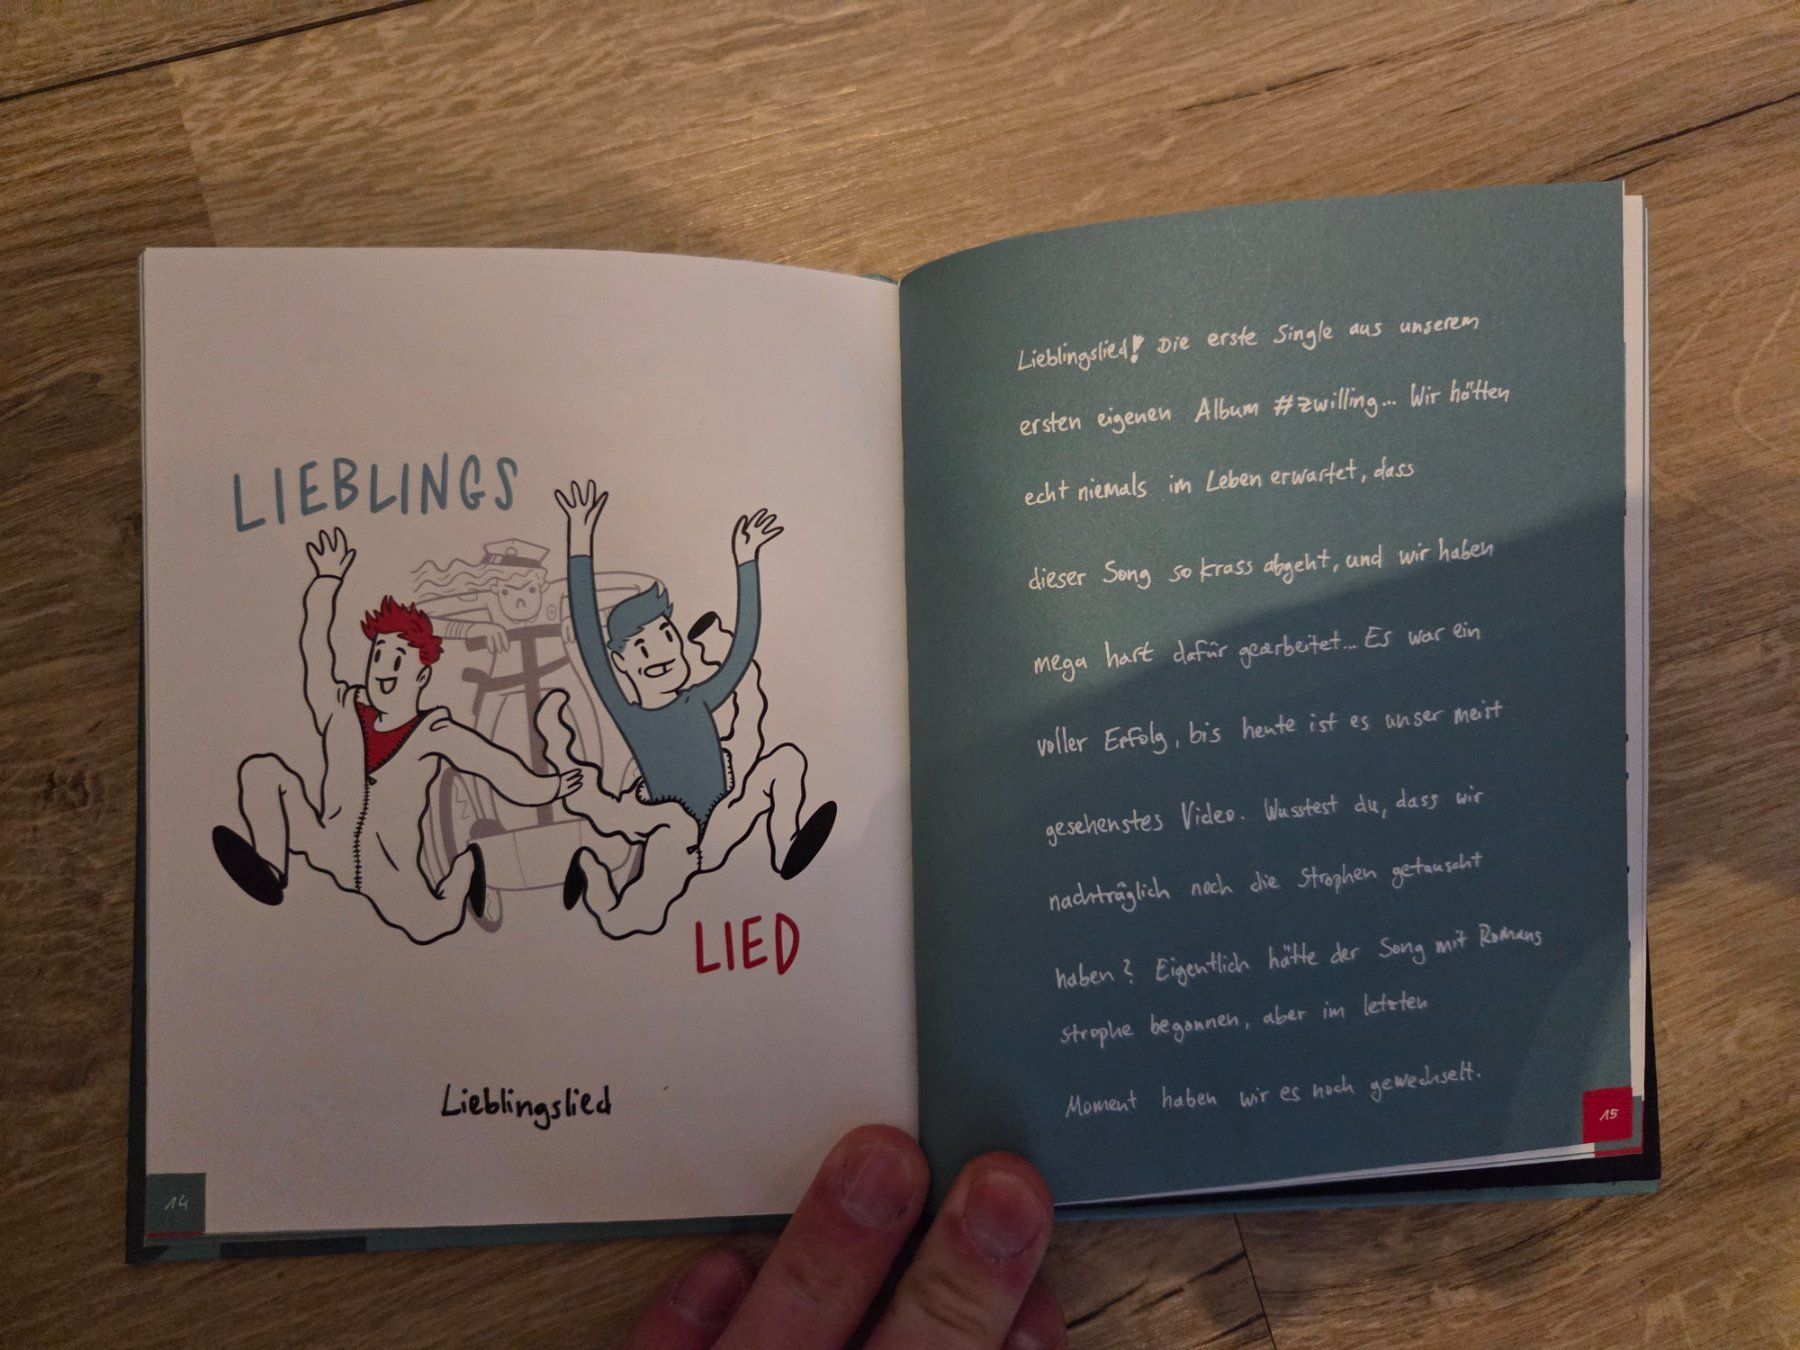 LIEBLINGS
LIED
Lieblingslied
14
Lieblingslied! Die erste Single aus unserem
ersten eigenen Album #zwilling... Wir hätten
echt niemals im Leben erwartet, dass
dieser Song so krass abgeht, und wir haben
mega hart dafür gearbeitet... Es war ein
voller Erfolg, bis heute ist es unser meist
gesehenstes Video. Wusstest du, dass wir
nachträglich noch die Strophen getauscht
haben? Eigentlich hätte der Song mit Romans
Strophe begonnen, aber im letzten
Moment haben wir es noch gewechselt.
15